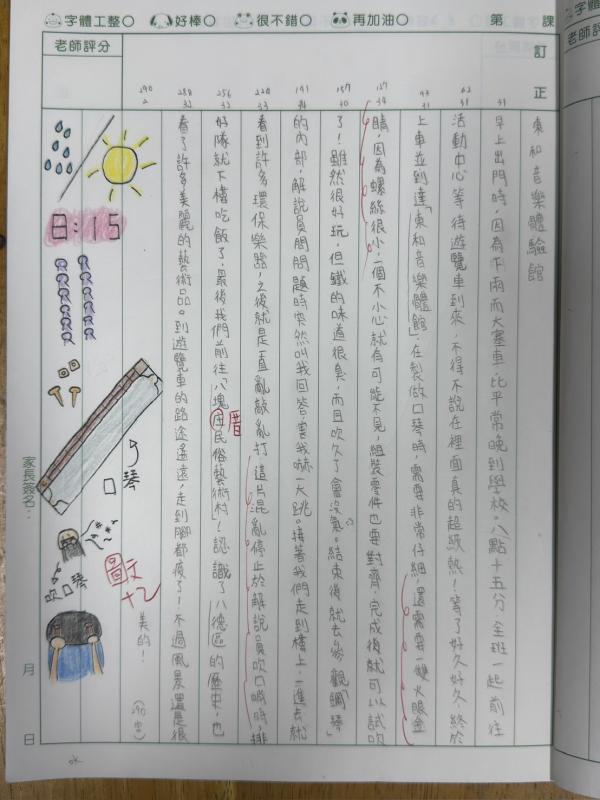 字體工整 好棒 很不錯 再加油 第 課
老師評分
訂正
東和音樂體驗館
早上出門時,因為下雨而大塞車,比平常晚到學校。八點十五分,全班一起前往
活動中心等待遊覽車到來,不得不說在裡面真的超級熱!等了好久好久,終於
上車並到達「東和音樂體館」,在製做口琴時,需要非常仔細,還需要一雙火眼金
睛,因為螺絲很小,一個不小心就有可能不見,組裝零件也要對齊,完成後就可以試吹
了!雖然很好玩,但鐵的味道很臭,而且吹久了會沒氣。結束後就去參觀「鋼琴」
的內部,解說員問問題時突然叫我回答,害我嚇一大跳。接著我們走到樓上,一進去就
看到許多環保樂器,之後就是一直亂敲亂打,這片混亂停止於解說員吹口哨時,排
好隊就下樓吃飯了,最後我們前往八塊庄民俗藝術村!認識了八德區的歷史,也
看了許多美麗的藝術品。到遊覽車的路途遙遠,走到腳都痠了!不過風景還是很
美的!
(初雲)
厝
8:15
口琴
吹口琴
圖文
+2
家長簽名:
月 日
ok
31
62
31
93
31
127
34
157
30
191
34
224
33
256
32
288
32
290
2